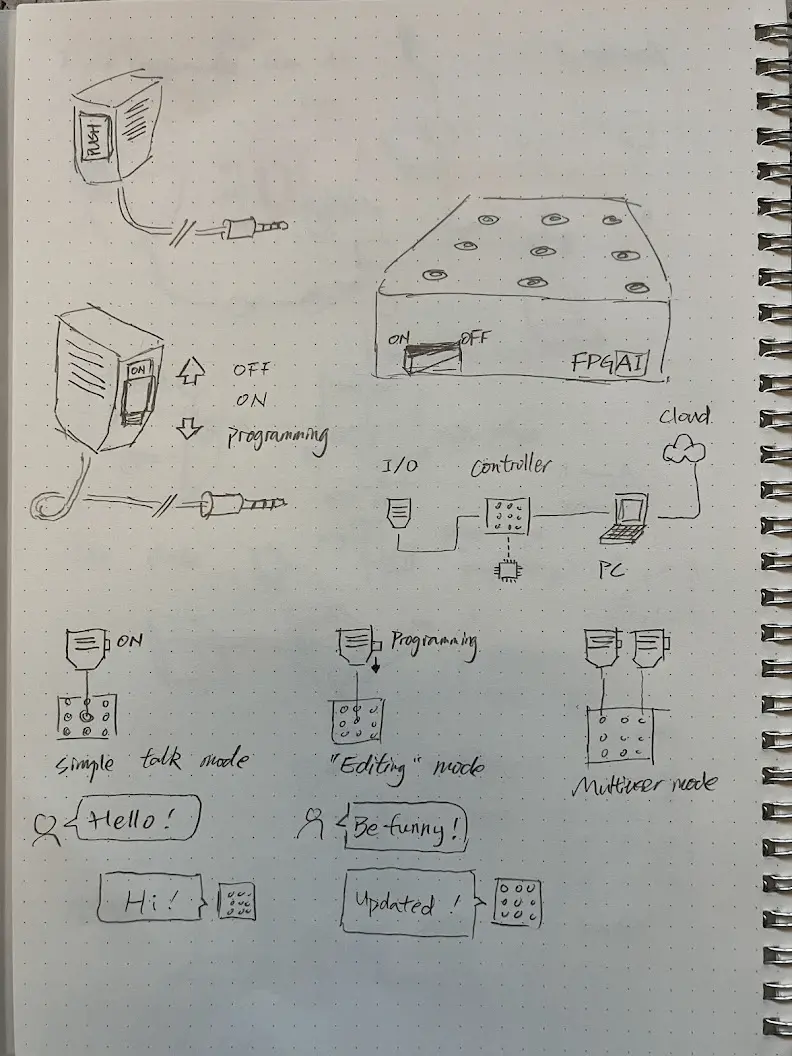 PUSH
ON OFF
FPGAI
ON
OFF
ON
programming
Cloud
I/O
Controller
PC
ON
Programming
Simple talk mode
"Editing" mode
Multiuser mode
Hello!
Be funny!
Hi!
Updated!